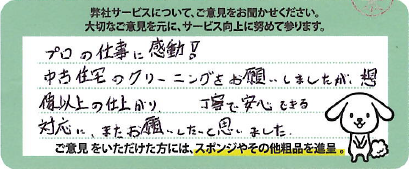 弊社サービスについて、ご意見をお聞かせください。
大切なご意見を元に、サービス向上に努めて参ります。
プロの仕事に感動!
中古住宅のクリーニングをお願いしましたが、想
像以上の仕上がり 丁寧で安心できる
対応に、またお願いしたいと思いました。
ご意見をいただけた方には、スポンジやその他粗品を進呈。